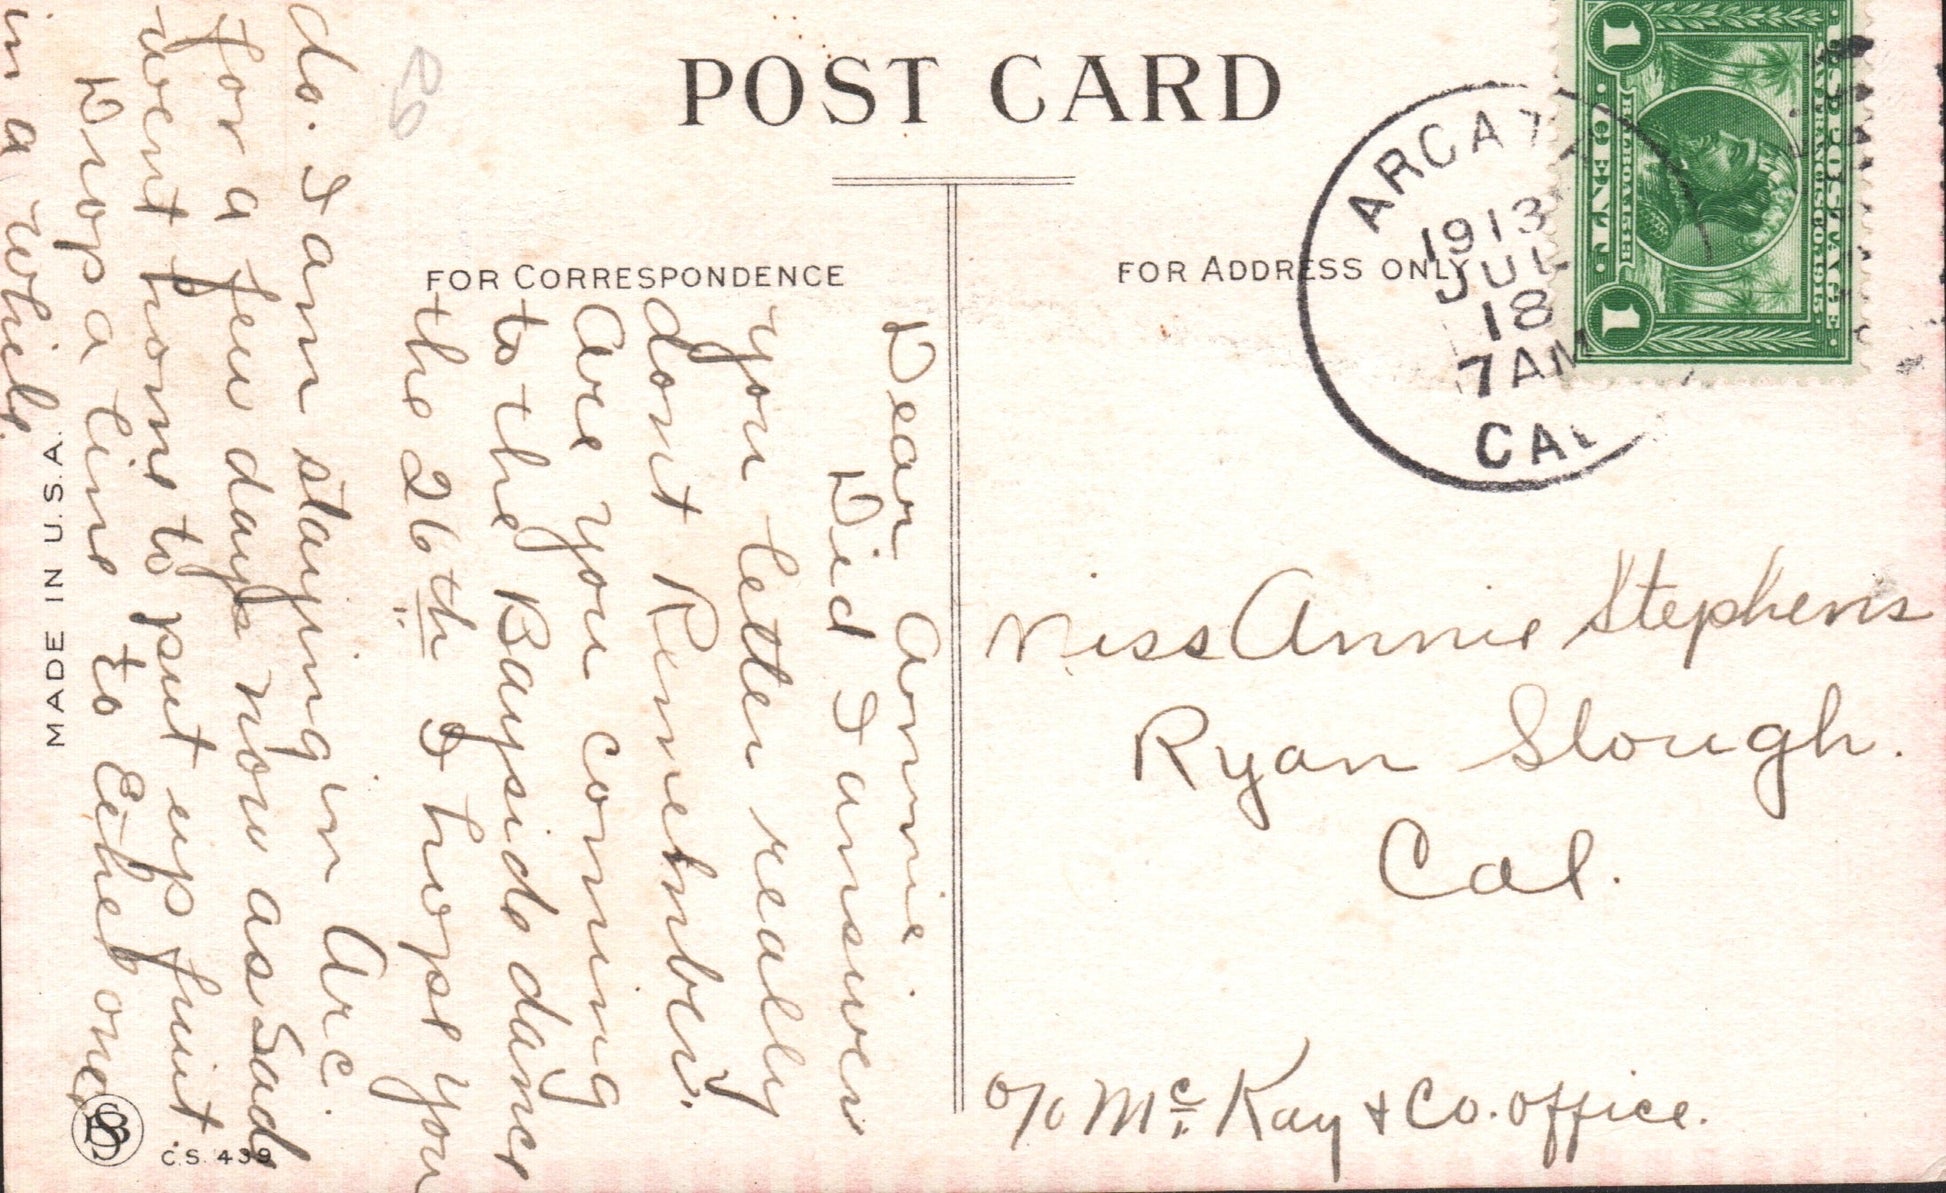 POST CARD
FOR CORRESPONDENCE
FOR ADDRESS ONLY
ARCATA
1913
JUL
18
7 AM
CAL
1 CENT 1
BALBOA 1513
U.S. POSTAGE
Dear Annie.
Did I answer
your letter really
dont Remember.
Are you coming
to the Bayside dance
the 26th I hope you
do. I am staying in Arc.
for a few days now as Sade
went home to put up fruit
Drop a line to Either one
in a while.
Miss Annie Stephens
Ryan Slough.
Cal.
c/o McKay & Co. office.
MADE IN U.S.A.
SB
C.S. 439
69